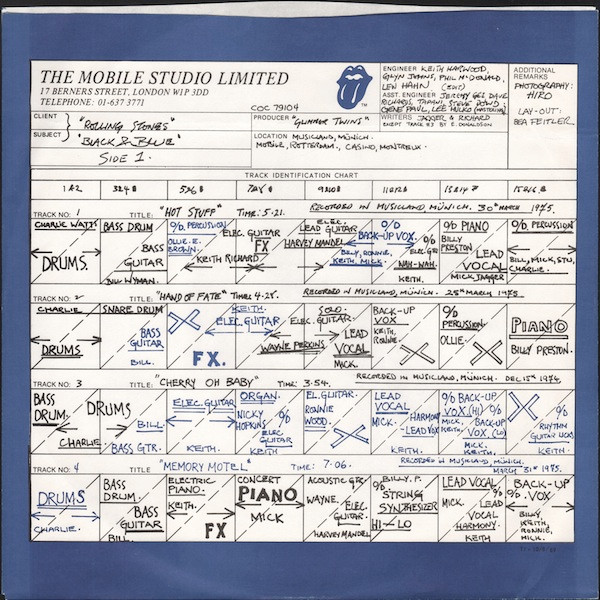 THE MOBILE STUDIO LIMITED
17 BERNERS STREET, LONDON W1P 3DD
TELEPHONE: 01-637 3771
COC 79104
CLIENT "ROLLING STONES"
SUBJECT "BLACK & BLUE"
SIDE 1.
PRODUCER "GLIMMER TWINS"
LOCATION MUSICLAND, MÜNICH.
MOBILE, ROTTERDAM., CASINO, MONTREUX.
ENGINEER KEITH HARWOOD,
GLYN JOHNS, PHIL McDONALD,
LEW HAHN (EDIT)
ASST. ENGINEER JEREMY GEE, DAVE
RICHARDS, TAPANI, STEVE DOWD,
GENE PAUL, LEE HULKO (MASTERING)
WRITERS JAGGER & RICHARD
EXEPT TRACK #3 BY E. DONALDSON
ADDITIONAL
REMARKS
PHOTOGRAPHY:
HIRO
LAY-OUT:
BEA FEITLER.
TRACK IDENTIFICATION CHART
TRACK NO: 1 TITLE: "HOT STUFF" TIME: 5·21. RECORDED IN MUSICLAND, MÜNICH. 30th MARCH 1975.
CHARLIE WATTS
DRUMS.
BASS DRUM
BASS
GUITAR
BILL WYMAN.
% PERCUSSION
OLLIE. E.
BROWN.
KEITH RICHARD
ELEC. GUITAR
FX
ELEC.
LEAD GUITAR
HARVEY MANDEL
%
BACK-UP VOX.
BILLY, RONNIE,
KEITH, MICK.
%
ELEC GTR
NAH-NAH.
KEITH.
% PIANO
BILLY
PRESTON
LEAD
VOCAL
MICK JAGGER
%, PERCUSSION
BILL, MICK, STU,
CHARLIE.
TRACK NO: 2 TITLE: "HAND OF FATE" TIME: 4·28. RECORDED IN MUSICLAND, MÜNICH. 25th MARCH 1975
CHARLIE
DRUMS
SNARE DRUM
BASS
GUITAR
BILL.
FX.
KEITH.
ELEC. GUITAR
SOLO.
ELEC. GUITAR
WAYNE PERKINS
LEAD
VOCAL
MICK.
BACK-UP
VOX
KEITH,
RONNIE.
%
PERCUSSION.
OLLIE.
PIANO
BILLY PRESTON.
TRACK NO. 3 TITLE: "CHERRY OH BABY" TIME: 3·54. RECORDED IN MUSICLAND, MÜNICH. DEC 15th 1974.
BASS
DRUM.
DRUMS
CHARLIE
BILL.
BASS GTR.
ELEC. GUITAR
KEITH.
ORGAN.
NICKY
HOPKINS
%
ELEC
GUITAR
KEITH
EL. GUITAR.
RONNIE
WOOD.
LEAD
VOCAL
MICK.
HARMONY
LEAD VOX
% BACK-UP
VOX (HI) %
MICK. BACK-UP
KEITH. VOX. (LO)
MICK.
KEITH.
%
RHYTHM
GUITAR (LICK)
KEITH.
TRACK NO: 4 TITLE: "MEMORY MOTEL" TIME: 7·06. RECORDED IN MUSICLAND, MÜNICH.
MARCH 31st 1975.
DRUMS
CHARLIE.
BASS
DRUM.
BASS
GUITAR
BILL.
ELECTRIC
PIANO.
KEITH.
FX
CONCERT
PIANO
MICK
ACOUSTIC GTR
WAYNE.
%
ELEC.
GUITAR.
HARVEY MANDEL
BILLY. P.
%
STRING
SYNTHESIZER
HI-LO
LEAD VOCAL
MICK.
%
LEAD
VOCAL
HARMONY.
KEITH
BACK-UP
% VOX
BILLY,
KEITH,
RONNIE,
MICK.